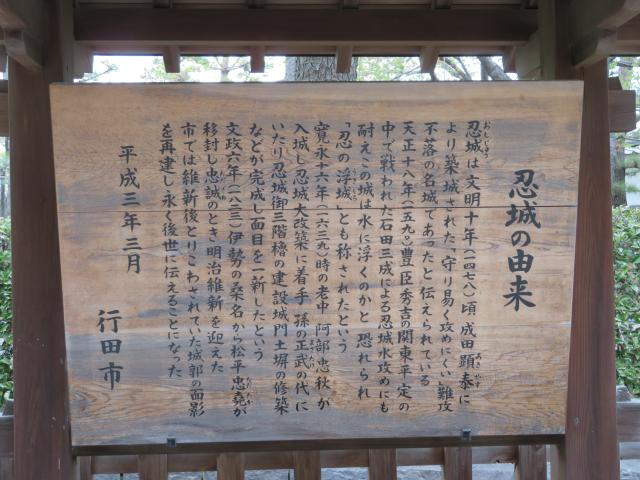 忍城の由来
忍城は文明十年(一四七八)頃 成田顕泰に
より築城された「守り易く攻めにくい」難攻
不落の名城であったと伝えられている
天正十八年(一五九〇)豊臣秀吉の関東平定の
中で戦われた石田三成による忍城水攻めにも
耐えこの城は水に浮くのかと 恐れられ
「忍の浮城」とも称されたという
寛永十六年(一六三九)時の老中 阿部忠秋が
入城し忍城大改築に着手 孫の正武の代に
いたり忍城御三階櫓の建設城門土塀の修築
などが完成し面目を一新したという
文政六年(一八二三)伊勢の桑名から松平忠堯が
移封し忠誠のとき明治維新を迎えた
市では維新後とりこわされていた城郭の面影
を再建し永く後世に伝えることになった
平成三年三月
行田市